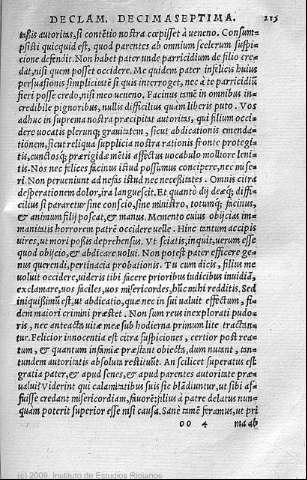 DECLAM. DECIMASEPTIMA. 215
autoritas, si contētio nostra cœpisset à ueneno. Consum-
psisti quicquid est, quod parentes ab omnium scelerum suspi-
cione defendit. Non habet pater unde parricidium de filio cre-
dat, nisi quem posset occidere. Me quidem pater infelicis huius
persuasionis simplicitate si quis interroget, nec à te parricidiū
fieri posse credo, nisi meo ueneno. Facinus tamē in omnibus in-
credibile pignoribus, nullis difficilius quàm liberis puto. Vos
adhuc in suprema nostra præcipitat autoritas, qui filium occi-
dere uocatis plerunq; grauitatem, sicut abdicationis emenda-
tionem, sicut reliqua supplicia nostra rationis fronte protegi-
tis, cunctosq; prærigidæ mētis affectus uocabulo molliore leni-
tis. Nos nec felices facinus istud possumus concipere, nec mise-
ri. Non perueniunt ad nefas istud nec necessitates. Omnis citra
desperationem dolor, ira languescit. Et quantò dij deæq; diffi-
cilius si pararetur sine conscio, sine ministro, totumq; facinus,
et animum filij poscat, et manus. Memento cuius obijcias im-
manitatis horrorem patrē occidere uelle. Hinc tantum accipis
uires, ut mori possis deprehensus. Vt sciatis, inquit, uerum esse
quod obijcio, et abdicare uolui. Non potest pater efficere ge-
nus querendi, pertinacia probationis. Tu cum dicis, filius me
uoluit occidere, uideris tibi facere prioribus iudicibus inuidiā,
exclamare, uos faciles, uos misericordes, hūc mihi redditis. Sed
iniquissimū est, ut abdicatio, quæ nec in sui ualuit effectum, fi-
dem maiori crimini præstet. Non sum reus inexplorati pudo-
ris, nec anteacta uitæ meæ sub hodierna primum lite tractan-
tur. Felicior innocentia est citra suspiciones, certior post rea-
tum, et quantum infamiæ præstant obiecta, dum nutant, tan-
tundem autoritatis absoluta restituūt. An scilicet superatus est
gratia pater, et apud senes, et apud parentes autoritate præ-
ualuit? uiderint qui calamitatibus suis sic blādiuntur, ut sibi as-
suisse credant misericordiam, fauorē; filius à patre delatus nun-
quàm poterit superior esse nisi causa. Sanè tamē feramus, ut pri
oo 4 ma ab
(c) 2009. Instituto de Estudios Riojanos